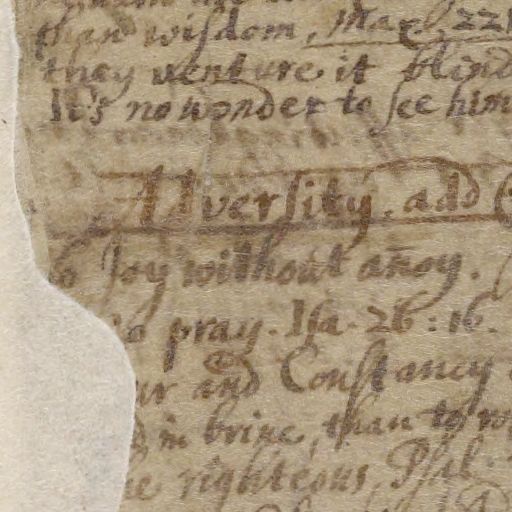 than wiſdom, Max. 221
they venture it blind
It's no wonder to ſee him
Adverſity. add
Joy without añoy.
to pray. Iſa. 26: 16.
and Conſtancy
in brine, than to
righteous, Pſal.